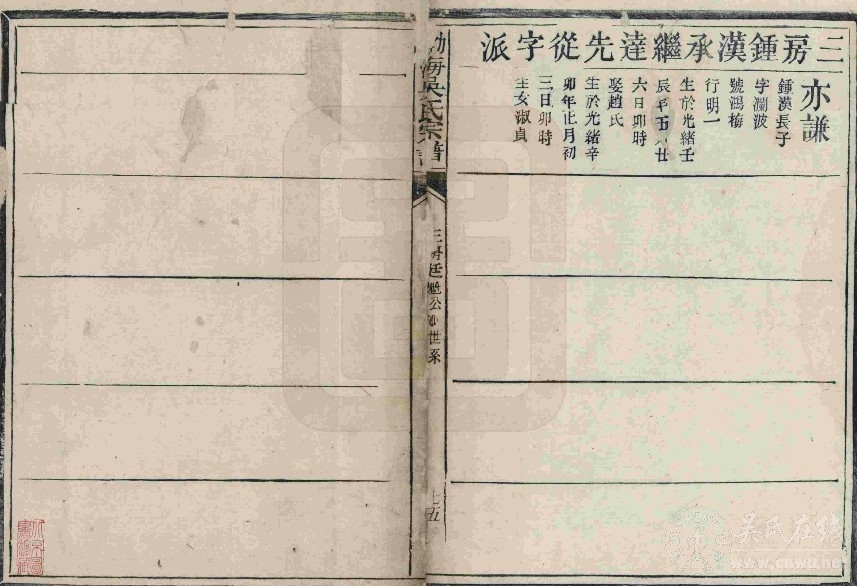 三房鍾漢承繼達先從字派
亦謙
鍾漢長子
字瀾波
號鴻梅
行明一
生於光緒壬
辰年五月廿
六日卯時
娶趙氏
生於光緒辛
卯年正月初
三日卯時
生女淑貞
渤海吳氏宗譜
三房廷 公 世系
七五
吳氏在线
www.cnwu.net